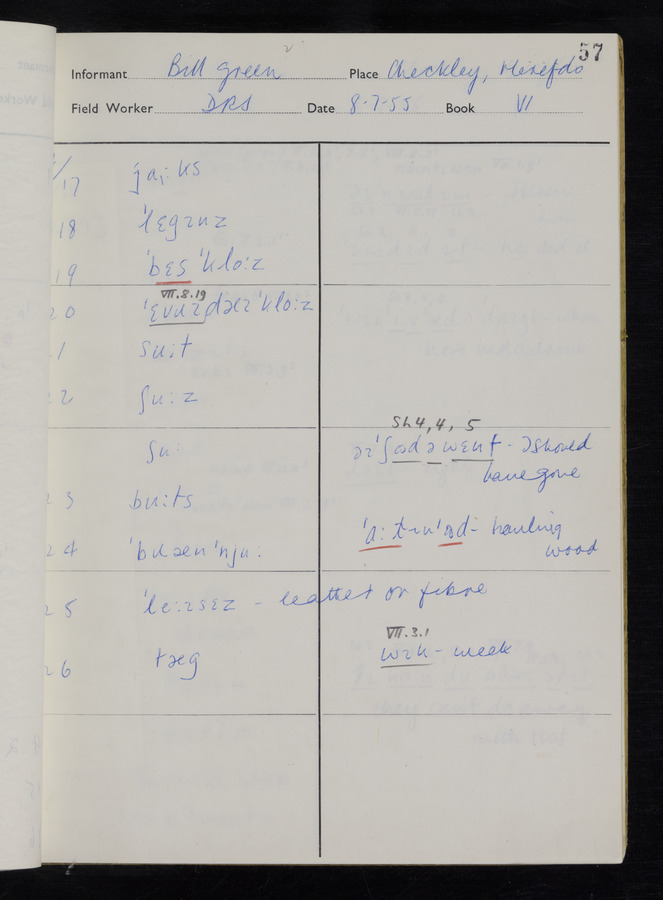 57
Informant Bill Green Place Checkley, Herefds
Field Worker DRS Date 8-7-55 Book VI
/17 jaːks
18 ˈlɛgɪnz
19 ˈbɛs ˈkloːz
VII.8.19
20 ˈɛvɹɪdæɪˈkloːz
1 suːt
2 ʃuːz
SH4, 4, 5
ʃuː əɪˈʃɒd ə wɛnt - I should
have gone
3 buːts
ˈɑːtɪnˈɒd - hauling
wood
24 ˈbɹænˈnjuː
25 ˈleːɪsɛz - leather or fibre
VII.3.1
26 tæg wɪk - week